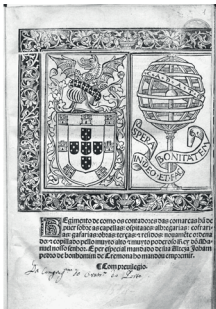 SPERA
BONITATEM
IN DEO ET FAC
Regimento de como os contadores das comarcas hã de
prouer sobre as capellas: ospitaaes: albergarias: cofrari-
as: gafarias: obras: terças: e residos: nouamẽte ordena
do: e copillado pello muyto alto e muyto poderoso Rey dõ Ma-
nuel nosso senhor. E per especial mandado de sua Alteza Joham
pedro de bonhomini de Cremona ho mandou empremir.
Com preuilegio.